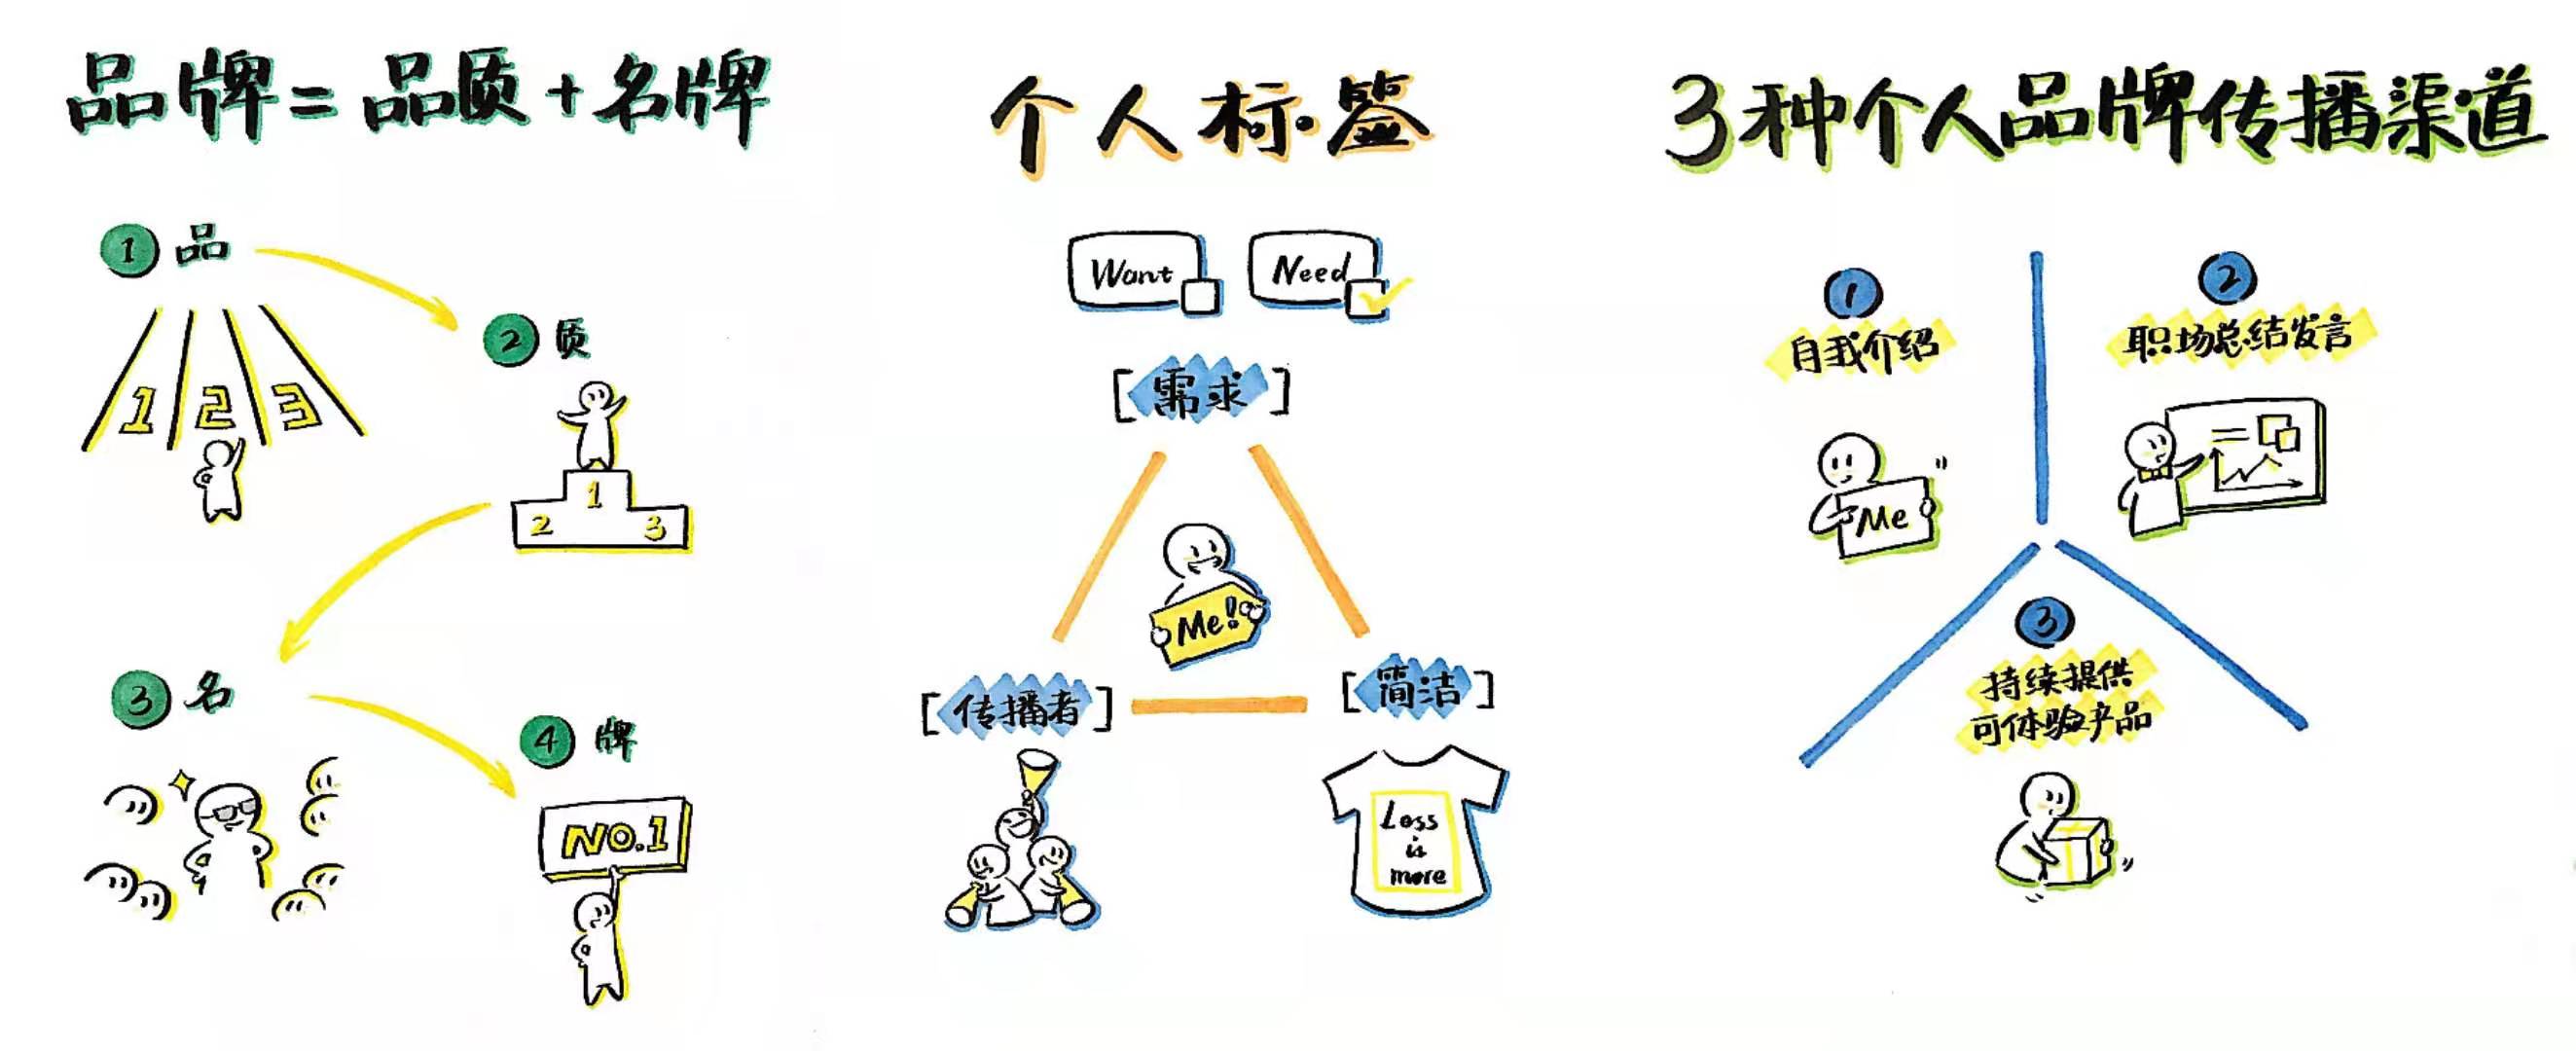 品牌=品质+名牌
① 品
1 2 3
② 质
1
2 3
③ 名
④ 牌
NO.1
个人标签
Want Need
[需求]
Me!
[传播者] [简洁]
Loss
is
more
3种个人品牌传播渠道
①
自我介绍
Me
②
职场总结发言
③
持续提供
可体验产品